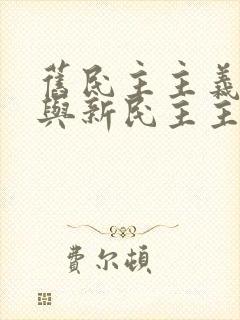 舊民主主義
與新民主主
費尔頓